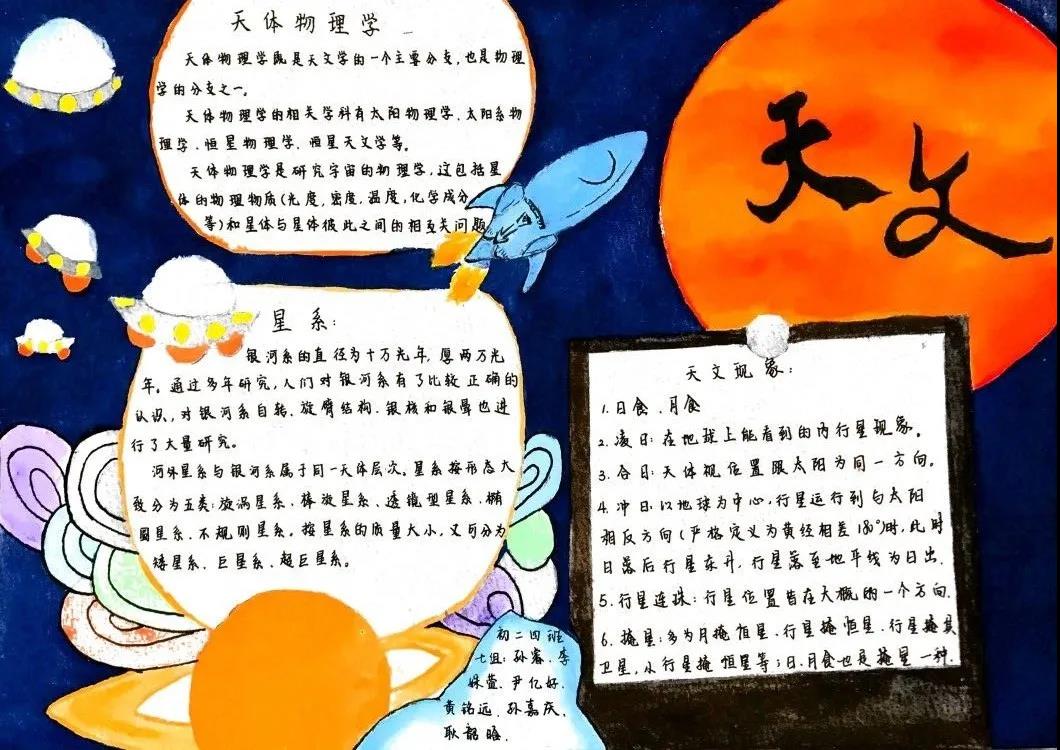 天体物理学
天体物理学既是天文学的一个主要分支,也是物理
学的分支之一。
天体物理学的相关学科有太阳物理学、太阳系物
理学、恒星物理学、恒星天文学等。
天体物理学是研究宇宙的物理学,这包括星
体的物理物质(光度,密度,温度,化学成分
等)和星体与星体彼此之间的相互关问题
天文
星系:
银河系的直径为十万光年,厚两万光
年。通过多年研究,人们对银河系有了比较正确的
认识,对银河系自转、旋臂结构、银核和银晕也进
行了大量研究。
河外星系与银河系属于同一天体层次。星系按形态大
致分为五类:旋涡星系、棒旋星系、透镜型星系、椭
圆星系、不规则星系。按星系的质量大小,又可分为
矮星系、巨星系、超巨星系。
天文现象:
1.日食、月食
2.凌日:在地球上能看到的内行星现象。
3.合日:天体视位置跟太阳为同一方向。
4.冲日:以地球为中心,行星运行到与太阳
相反方向(严格定义为黄经相差180°)时,此时
日落后行星东升,行星落至地平线为日出.
5.行星连珠:行星位置皆在大概的一个方向.
6.掩星:多为月掩恒星、行星掩恒星、行星掩其
卫星,小行星掩恒星等;日、月食也是掩星一种.
初二四班
七组:孙睿、李
姝萱、尹亿好、
黄铭远、孙嘉庆、
耿韶晗.